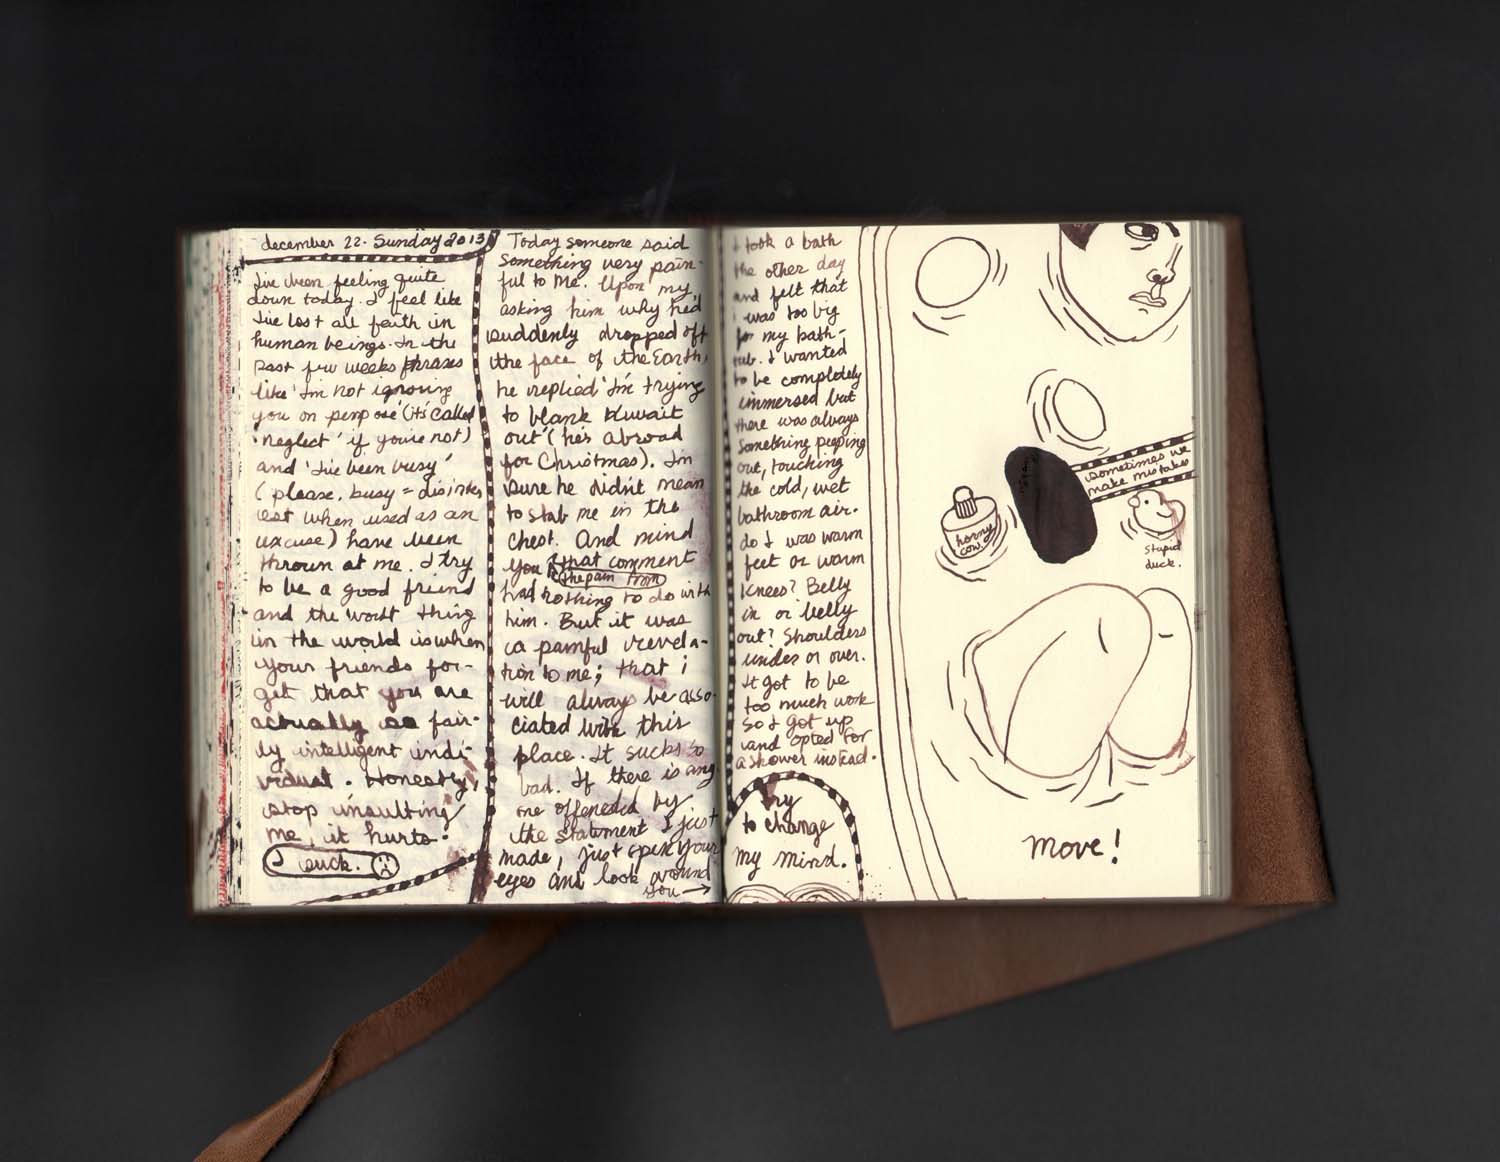 december 22. Sunday 2013
I've been feeling quite
down today. I feel like
I've lost all faith in
human beings. In the
past few weeks phrases
like 'I'm not ignoring
you on purpose' (it's called
'neglect' if you're not)
and 'I've been busy'
(please, busy = disinter
est when used as an
excuse) have been
thrown at me. I try
to be a good friend
and the worst thing
in the world is when
your friends for-
get that you are
actually a fair-
ly intelligent indi-
vidual. Honestly,
stop insulting
me, it hurts.
I suck.
Today someone said
something very pain-
ful to me. Upon my
asking him why he'd
suddenly dropped off
the face of the Earth,
he replied 'I'm trying
to blank Kuwait
out' (he's abroad
for Christmas). I'm
sure he didn't mean
to stab me in the
chest. And mind
you that comment
the pain from
had nothing to do with
him. But it was
a painful revela-
tion to me; that i
will always be asso-
ciated with this
place. It sucks so
bad. If there is any
one offended by
the statement I just
made, just open your
eyes and look around
you →
I took a bath
the other day
and felt that
i was too big
for my bath-
tub. I wanted
to be completely
immersed but
there was always
something peeping
out, touching
the cold, wet
bathroom air.
do I was warm
feet or warm
knees? Belly
in or belly
out? Shoulders
under or over.
It got to be
too much work
so I got up
and opted for
a shower instead.
Try
to change
my mind.
sometimes we
make mistakes
horny
cow.
stupid
duck.
move!